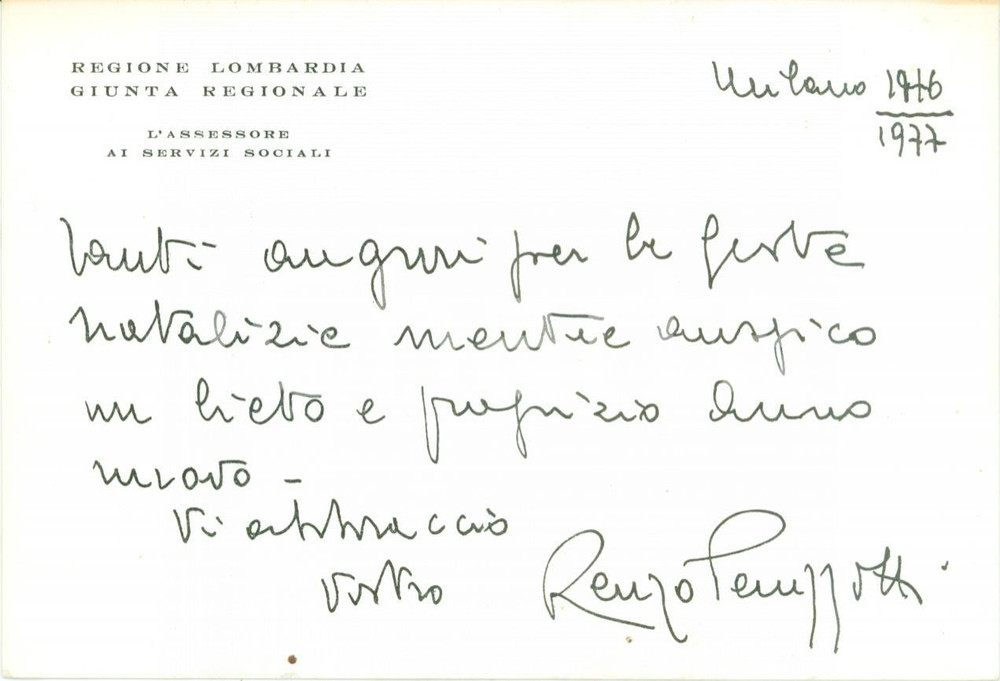 REGIONE LOMBARDIA
GIUNTA REGIONALE
L'ASSESSORE
AI SERVIZI SOCIALI
Milano 1976
1977
Tanti auguri per le feste
natalizie mentre auspico
un lieto e propizio anno
nuovo -
Vi abbraccio
Vostro Renzo Peruzzotti